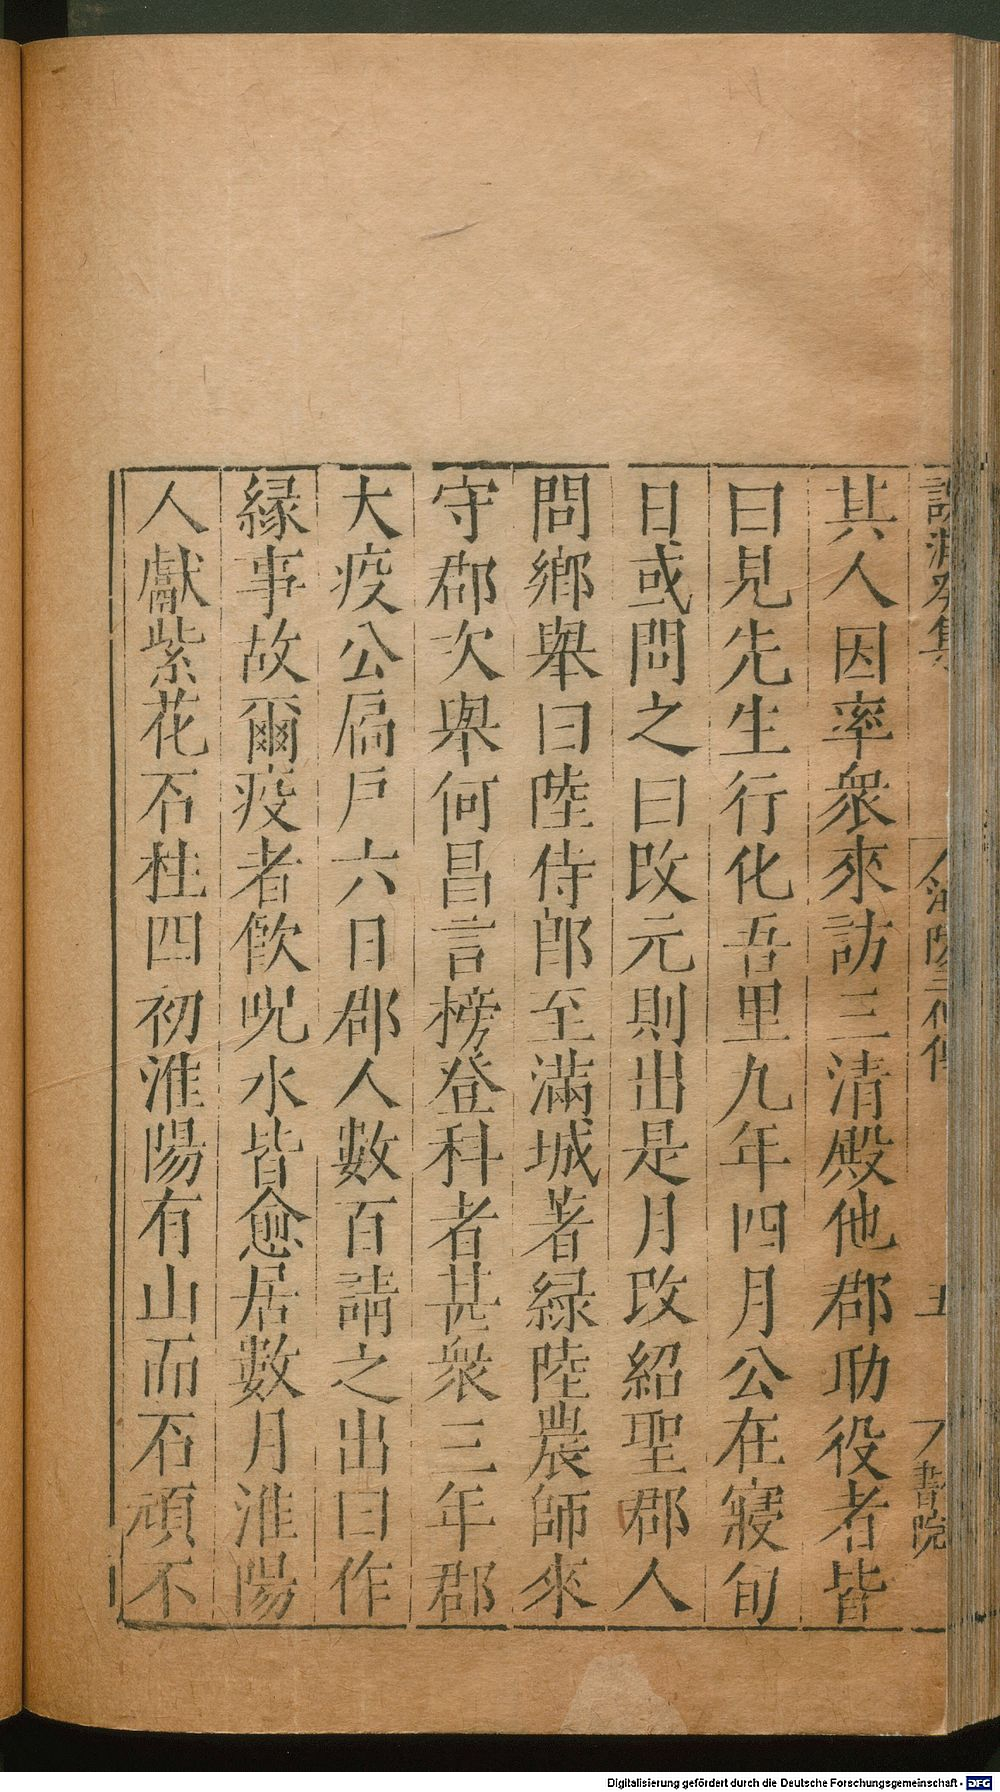 集
五
書院
其人因率衆來訪三清殿他郡助役者皆
曰見先生行化吾里九年四月公在寢旬
日或問之曰改元則出是月改紹聖郡人
問鄉舉曰陸侍郎至滿城著緑陸農師來
守郡次舉何昌言榜登科者甚衆三年郡
大疫公扃戸六日郡人數百請之出曰作
縁事故爾疫者飲呪水皆愈居數月淮陽
人獻紫花石柱四初淮陽有山而石頑不
Digitalisierung gefördert durch die Deutsche Forschungsgemeinschaft - DFG